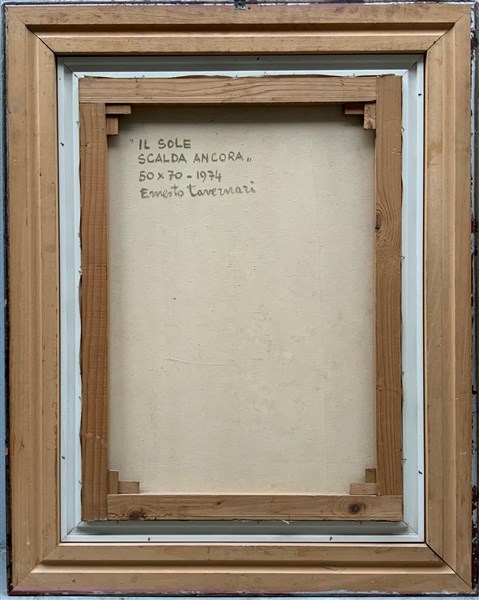 "IL SOLE
SCALDA ANCORA„
50 x 70 - 1974
Ernesto Tavernari